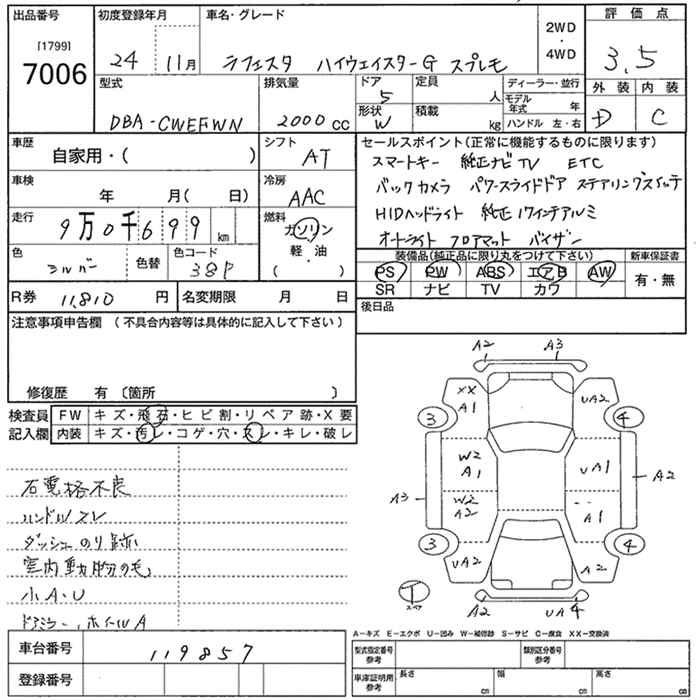 出品番号 初度登録年月 車名・グレード 2WD ・ 4WD 評価点
[1799]
7006 24 11月 ラフェスタ ハイウェイスターG スプレモ 3.5
外装 内装
D C
型式 排気量 ドア 定員 ディーラー・並行
DBA-CWEFWN 2000cc 5 人 モデル年式 年
形状 積載 ハンドル 左・右
W kg
車歴 シフト セールスポイント(正常に機能するものに限ります)
自家用・( ) AT スマートキー 純正ナビTV ETC
車検 冷房 バックカメラ パワースライドドア ステアリングスイッチ
年 月( 日) AAC HIDヘッドライト 純正17インチアルミ
走行 燃料 オートライト フロアマット バイザー
9万0千699km ガソリン
軽・油
( )
色 色替 色コード 装備品(純正品に限り丸をつけて下さい) 新車保証書
シルバー 38P PS PW ABS エアB AW 有・無
SR ナビ TV カワ
R券 11,810円 名変期限 月 日 後日品
注意事項申告欄(不具合内容等は具体的に記入して下さい)
修復歴 有〔箇所 〕
検査員記入欄 FW キズ・飛石・ヒビ割・リペア跡・X要
内装 キズ・汚レ・コゲ・穴・スレ・キレ・破レ
ハンドルスレ
ダッシュのり跡
室内動物の毛
小A・U
ドアミラー、ホイールA
A2 A3
XX A1 UA2
3 4
W2 A1 UA1
A3 A2
W2 A2 A1
3 4
UA2 A2
T スペア
A2 UA4
A-キズ E-エクボ U-凹み W-補修跡 S-サビ C-腐食 XX-交換済
車台番号 119857
登録番号
型式指定番号 参考 類別区分番号 参考
車庫証明用 参考 長さ cm 幅 cm 高さ cm